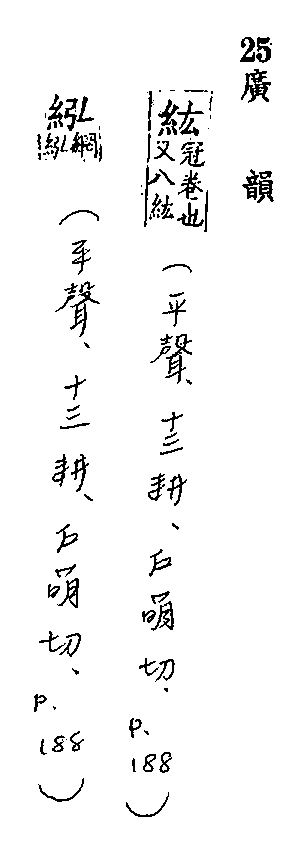 25 廣韻
紘 冠卷也又八紘 (平聲、十三耕、戶萌切、P.188)
紭 網紭 (平聲、十三耕、戶萌切、P.188)